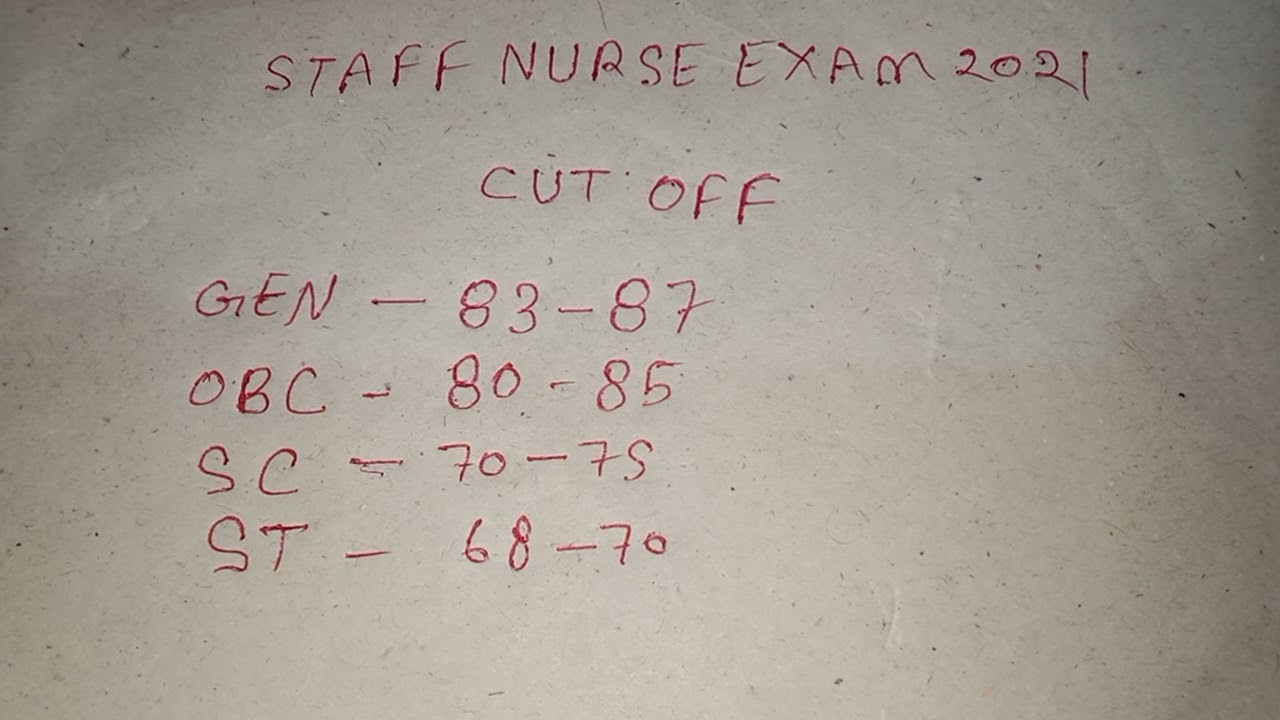 STAFF NURSE EXAM 2021
CUT OFF
GEN - 83-87
OBC - 80-85
SC - 70-75
ST - 68-70